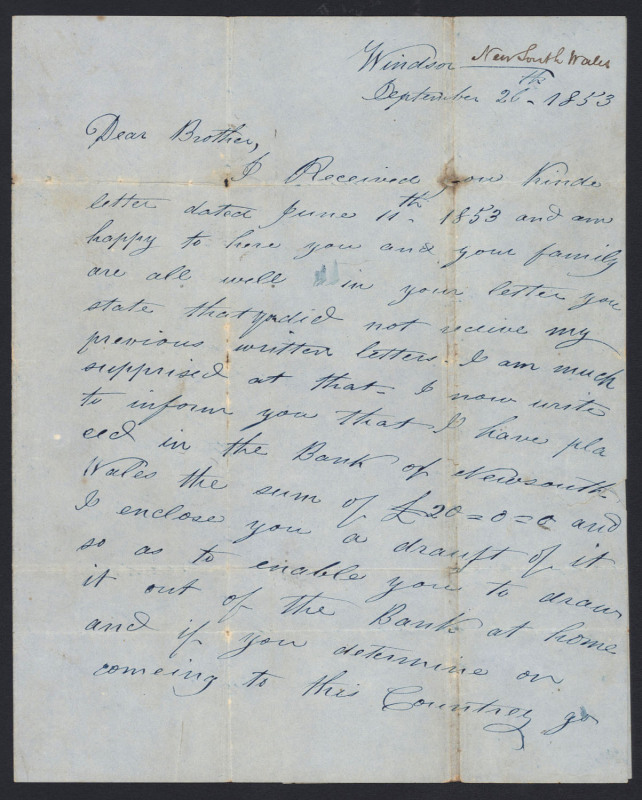 Windsor New South Wales
September 26th - 1853
Dear Brother,
I Received your Kinde
letter dated June 11th - 1853 and am
happy to here you and your family
are all well in your letter you
state that yu did not receive my
previous written letters I am much
supprised at that - I now write
to inform you that I have pla
ced in the Bank of Newsouth
Wales the sum of £20=0=0 and
I enclose you a drauft of it
so as to enable you to draw
it out of the Bank at home
and if you determine on
comeing to this Countrey go